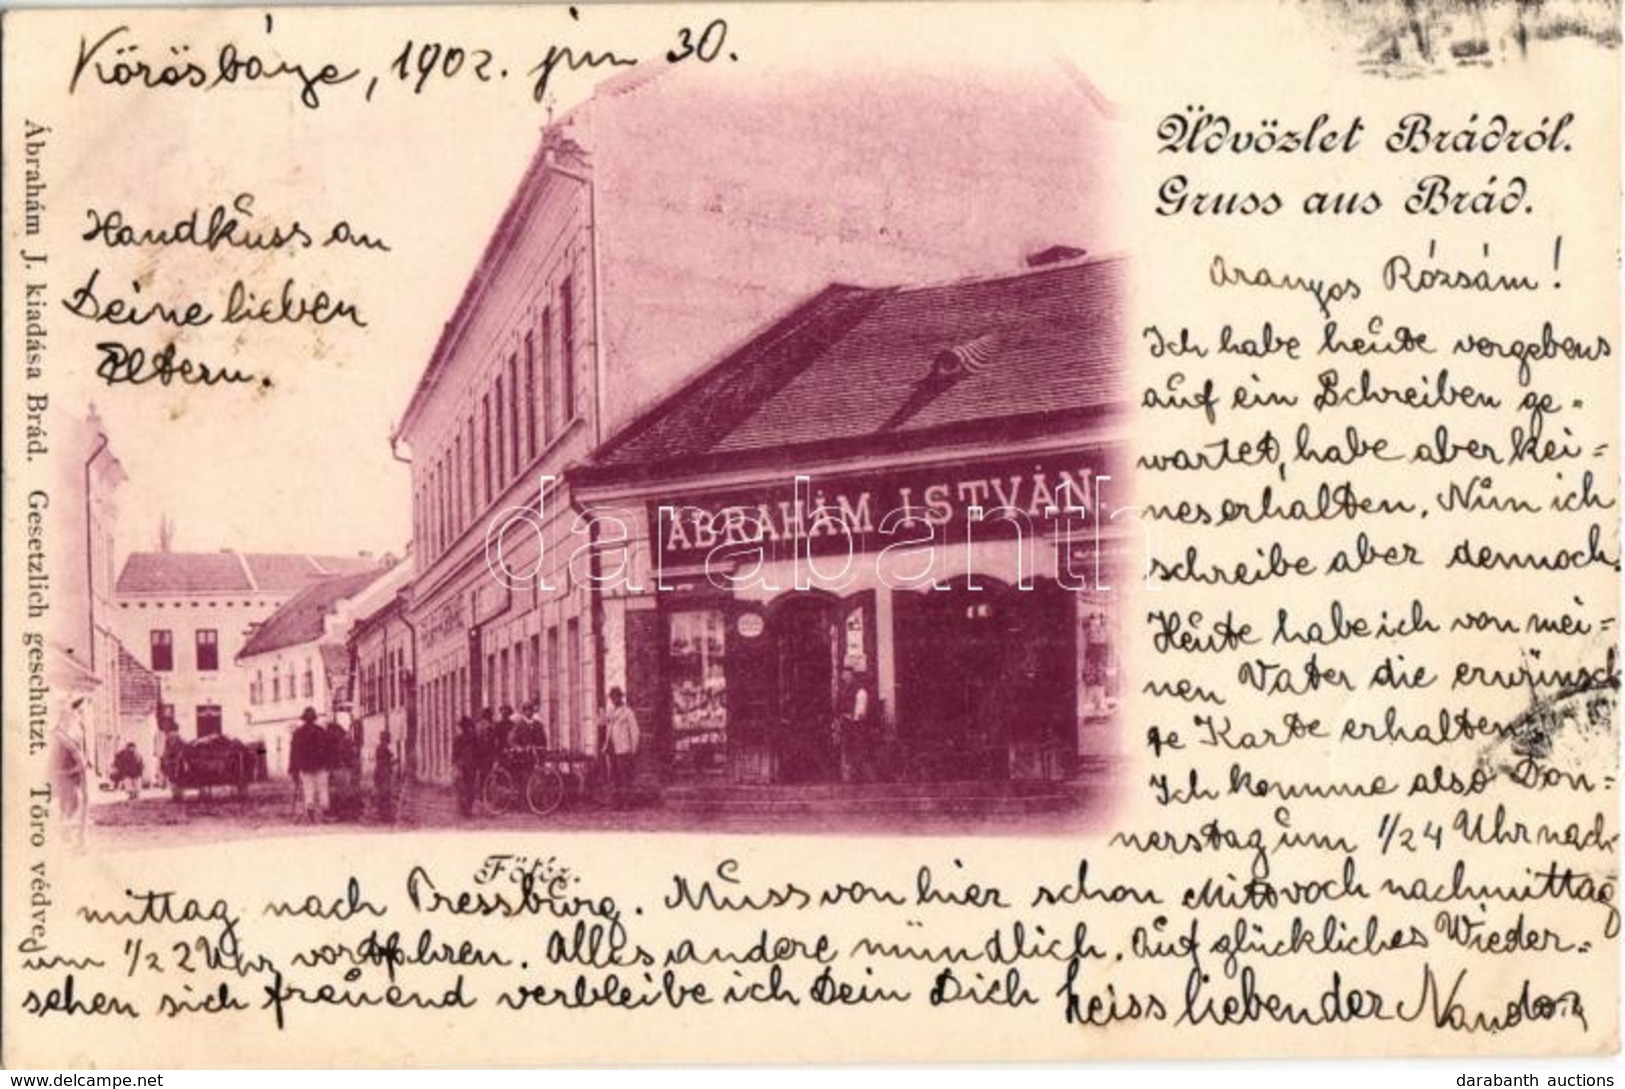 Körösbánya, 1902. jun 30.
Üdvözlet Brádról.
Gruss aus Brád.
Handkuss an
Deine lieben
Eltern.
Aranyos Rózsám!
Ich habe heute vergebens
auf ein Schreiben ge=
wartet, habe aber kei=
nes erhalten. Nun ich
schreibe aber dennoch.
Heute habe ich von mei=
nen Vater die erwünsch
te Karte erhalten.
Ich komme also Don=
nerstag um 1/2 4 Uhr nach
mittag nach Pressburg. Muss von hier schon Mittwoch nachmittag
um 1/2 2 Uhr fortfahren. Alles andere mündlich. Auf glückliches Wieder=
sehen sich freuend verbleibe ich Dein Dich heiss liebender Nandor
ÁBRAHÁM ISTVÁN.
Főtér.
Ábrahám J. kiadása Brád. Gesetzlich geschützt. Törv védve.
darabanth
darabanth auctions